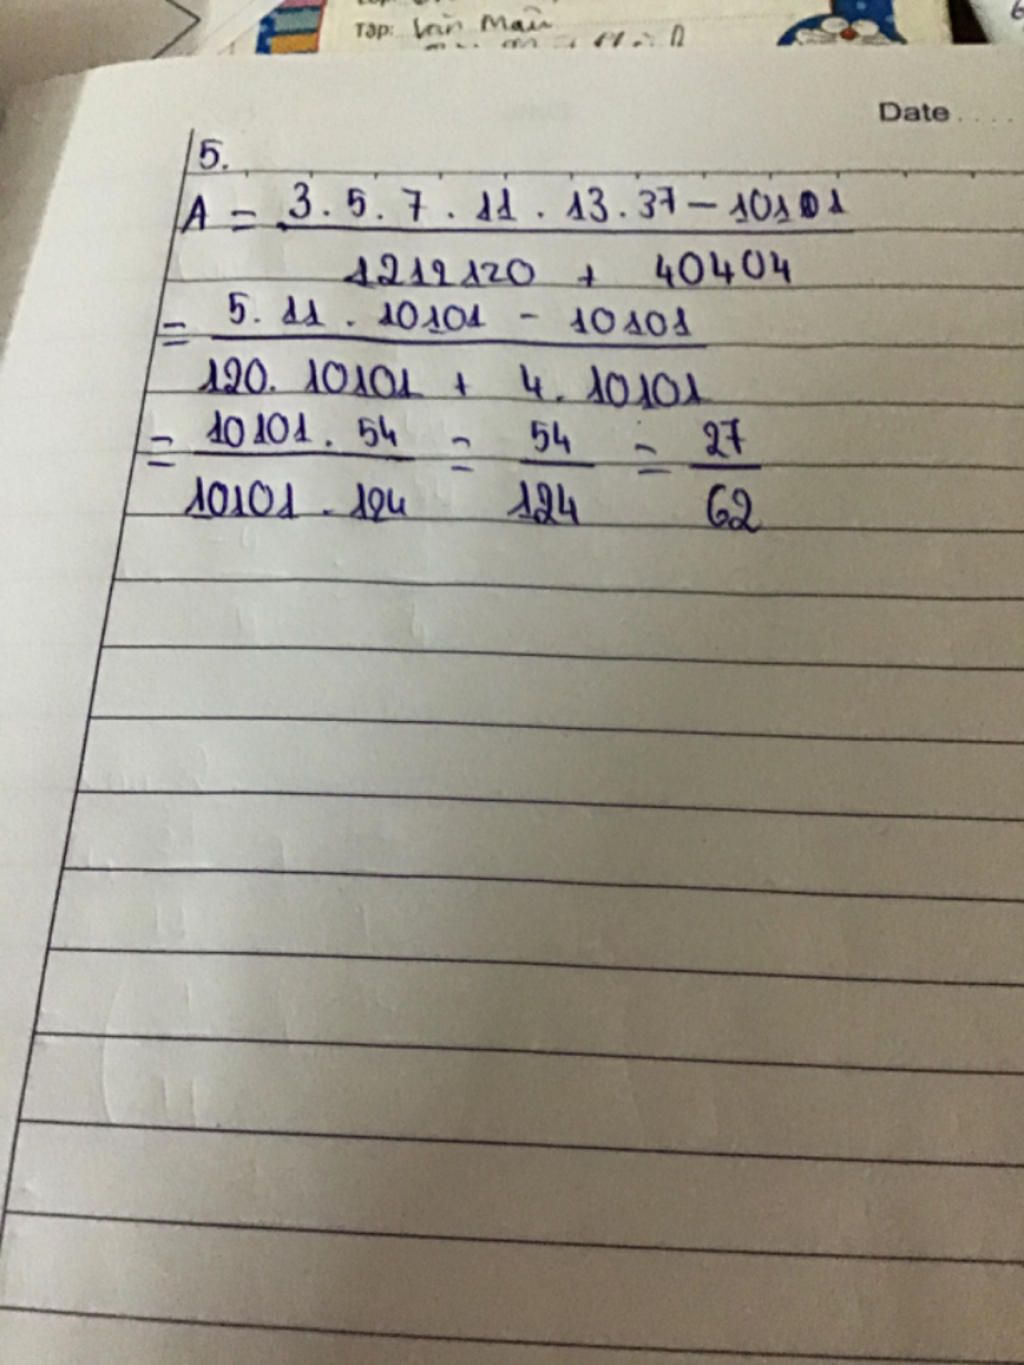 Tập: Văn Mẫu
Date ....
5.
A = 3.5.7.11.13.37 - 10101
1212120 + 40404
= 5.11.10101 - 10101
120.10101 + 4.10101
= 10101.54 = 54 = 27
10101.124 124 62